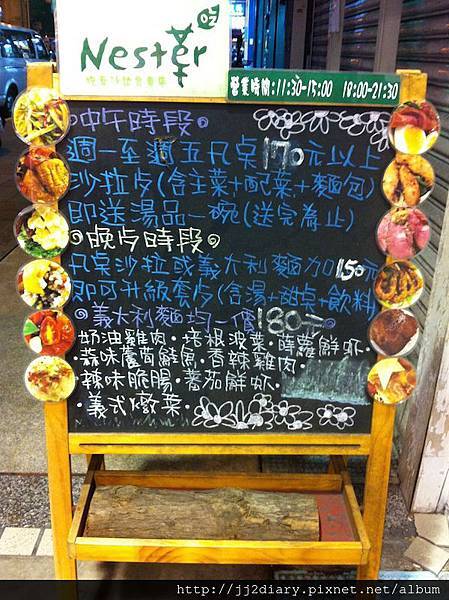 Nester
營業時間:11:30-15:00 18:00-21:30
中午時段
週一至週五凡点170元以上
沙拉夕(含主菜+配菜+麵包)
即送湯品一碗(送完為止)
晚夕時段
凡点沙拉或義大利麵加150元
即可升級套夕(含湯+甜点+飲料)
義大利麵均一價180元
奶油雞肉·培根菠菜·蒔蘿鮮蝦·
蒜味蘆筍鮭魚·香辣雞肉·
·辣味脆腸·蕃茄鮮蝦
·義式燉菜·
http://jj2diary.pixnet.net/album